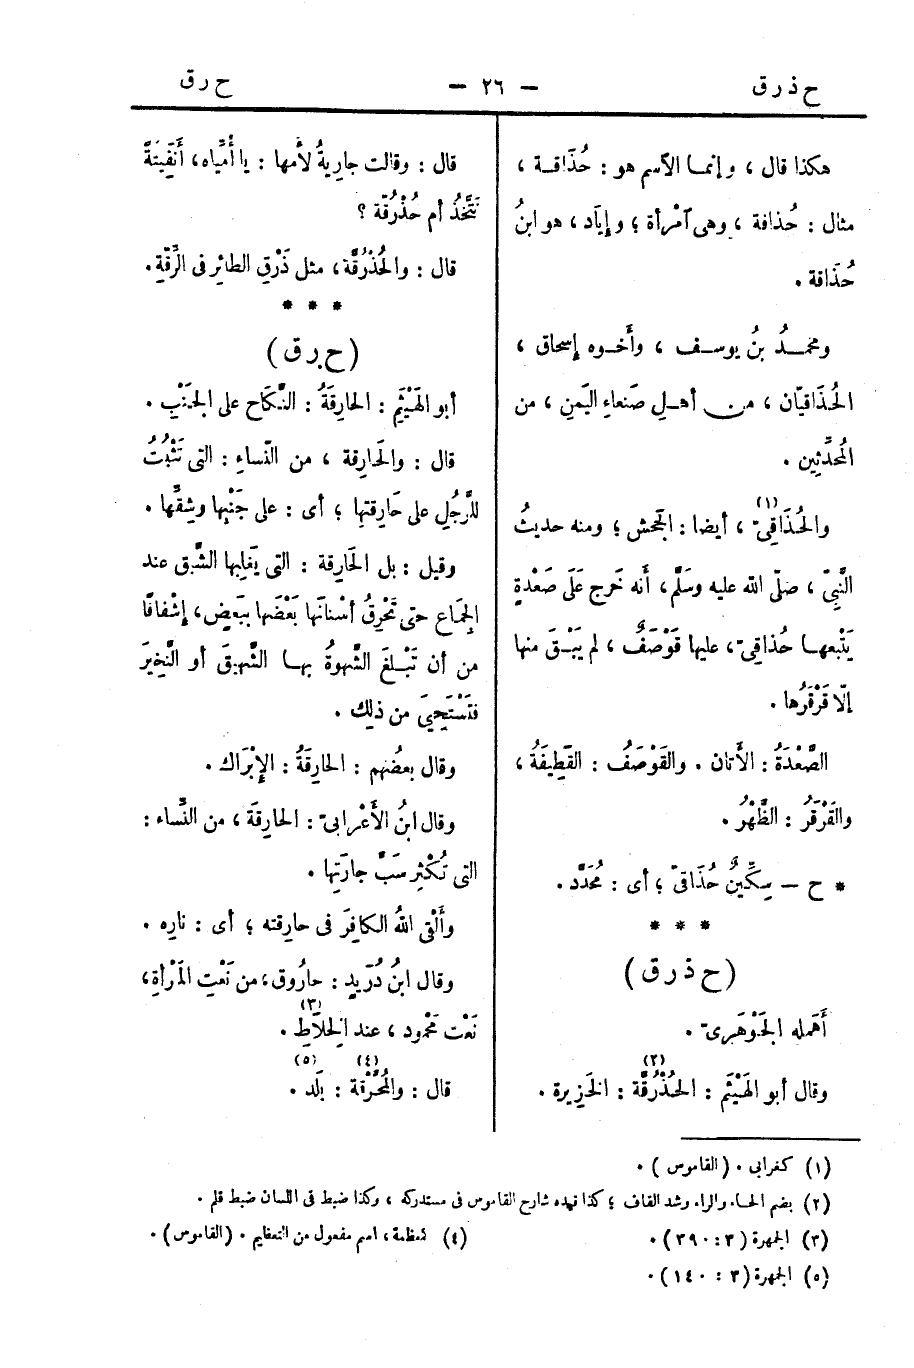 ح ذ ر ق
— ٢٦ —
ح ر ق
هكذا قال ، وإنمـا الآسم هو : حُذَاقـة ،
مثال : حُذافة ، وهى آمْرأة ؛ وإيَاد ، هو ابنُ
حُذَاقة .
ومحمــدُ بنُ يوســف ، وأَخــوه إسحاق ،
الحُذَاقيّان ، مـن أهـلِ صَنعاءِ اليَمنِ ، من
المُحدِّثين .
والحُذَاقىّ (١) ، أيضا : الجَحش ؛ ومنه حديثُ
النَّبِىّ ، صلّى الله عليه وسَلَّم ، أنه خَرج عَلَى صَعْدةٍ
يَتْبعهـا حُذاقىّ ، عليها قَوْصَفٌ ، لم يَبْـقَ منها
إلّا قَرْقَرُها .
الصَّعْدَةُ : الأَتان . والقَوْصَفُ : القَطِيفَةُ ،
والقَرْقَرُ : الظَّهْرُ .
* ح — سِكّينٌ حُذَاقىّ ؛ أى : مُحَدَّد .
* * *
(ح ذ ر ق)
أَهَمله الجَوْهَرىّ .
وقال أبو الهَيْثَم : الحُذْرُقَّة (٢) : الخَزِيرة .
قال : وقالت جاريةٌ لأُمها : يا أُمِّياه ، أَنَفِيتَةً
نَتَّخذُ أم حُذْرُقّة ؟
قال : والحُذْرُقَّة ، مثل ذَرْقِ الطائر فى الرِّقّةِ .
* * *
(ح ر ق)
أبو الهَيْثمِ : الحارِقَةُ : النِّكَاح على الجَنْبِ .
قال : والحَارِقة ، من النِّساءِ : التى تَثْبُتُ
للرَّجُلِ على حَارِقتِها ؛ أى : على جَنْبِها وشِقِّها .
وقيل : بل الحَارِقة : التى يَغلِبها الشَّبق عند
الجِمَاع حتى تَحْرِقُ أسْنانَها بَعْضَها ببَعضٍ ، إشْفاقًا
من أن تَبْــلغَ الشَّهوةُ بهــا الشَّهيقَ أو النَّخِيرَ
فتَسْتَحِيىَ من ذلِك .
وقال بعضُهم : الحارِقَةُ : الإبْرَاك .
وقال ابنُ الأَعْرابىّ : الحارِقَة ، من النِّساء :
التى تُكْثِر سَبَّ جارَتِها .
وأَلْقَى اللهُ الكافِرَ فى حارِقته ؛ أى : نارِه .
وقال ابنُ دُرَيدٍ : حارُوق ، من نَعْتِ المَرْأةِ ،
نَعْت مَحْمود ، عند الخِلاَطِ (٣) .
قال : والمُحَرَّقَة (٤) : بَلَد (٥) .
(١) كغرابى . (القاموس) .
(٢) بضم الحاء والراء وشد القاف ؛ كذا قيده شارح القاموس فى مستدركه ، وكذا ضبط فى اللسان ضبط قلم .
(٣) الجمهرة (٣ : ٣٩٠) .
(٤) كمعظمة ، اسم مفعول من التعظيم . (القاموس) .
(٥) الجمهرة (٣ : ١٤٠) .